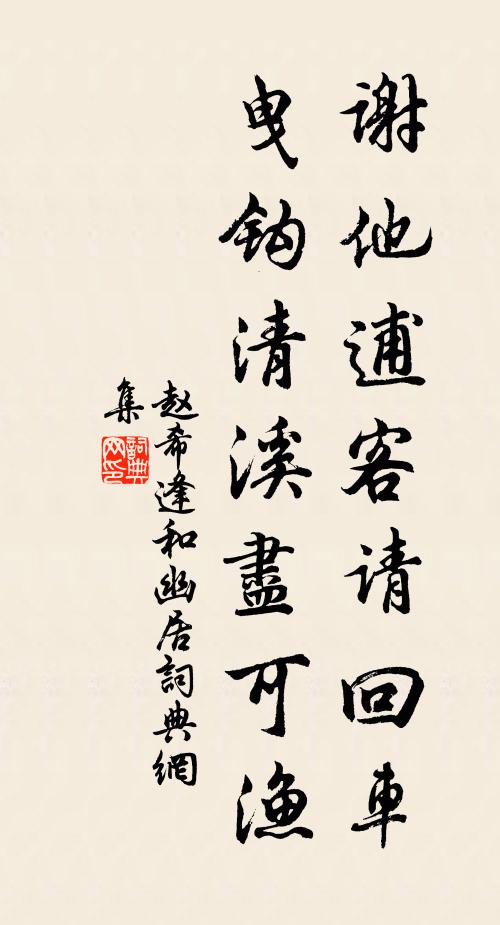 谢他逋客请回車
曳钩清溪盡可漁
赵希逢和幽居詞典網
集
詞典网印